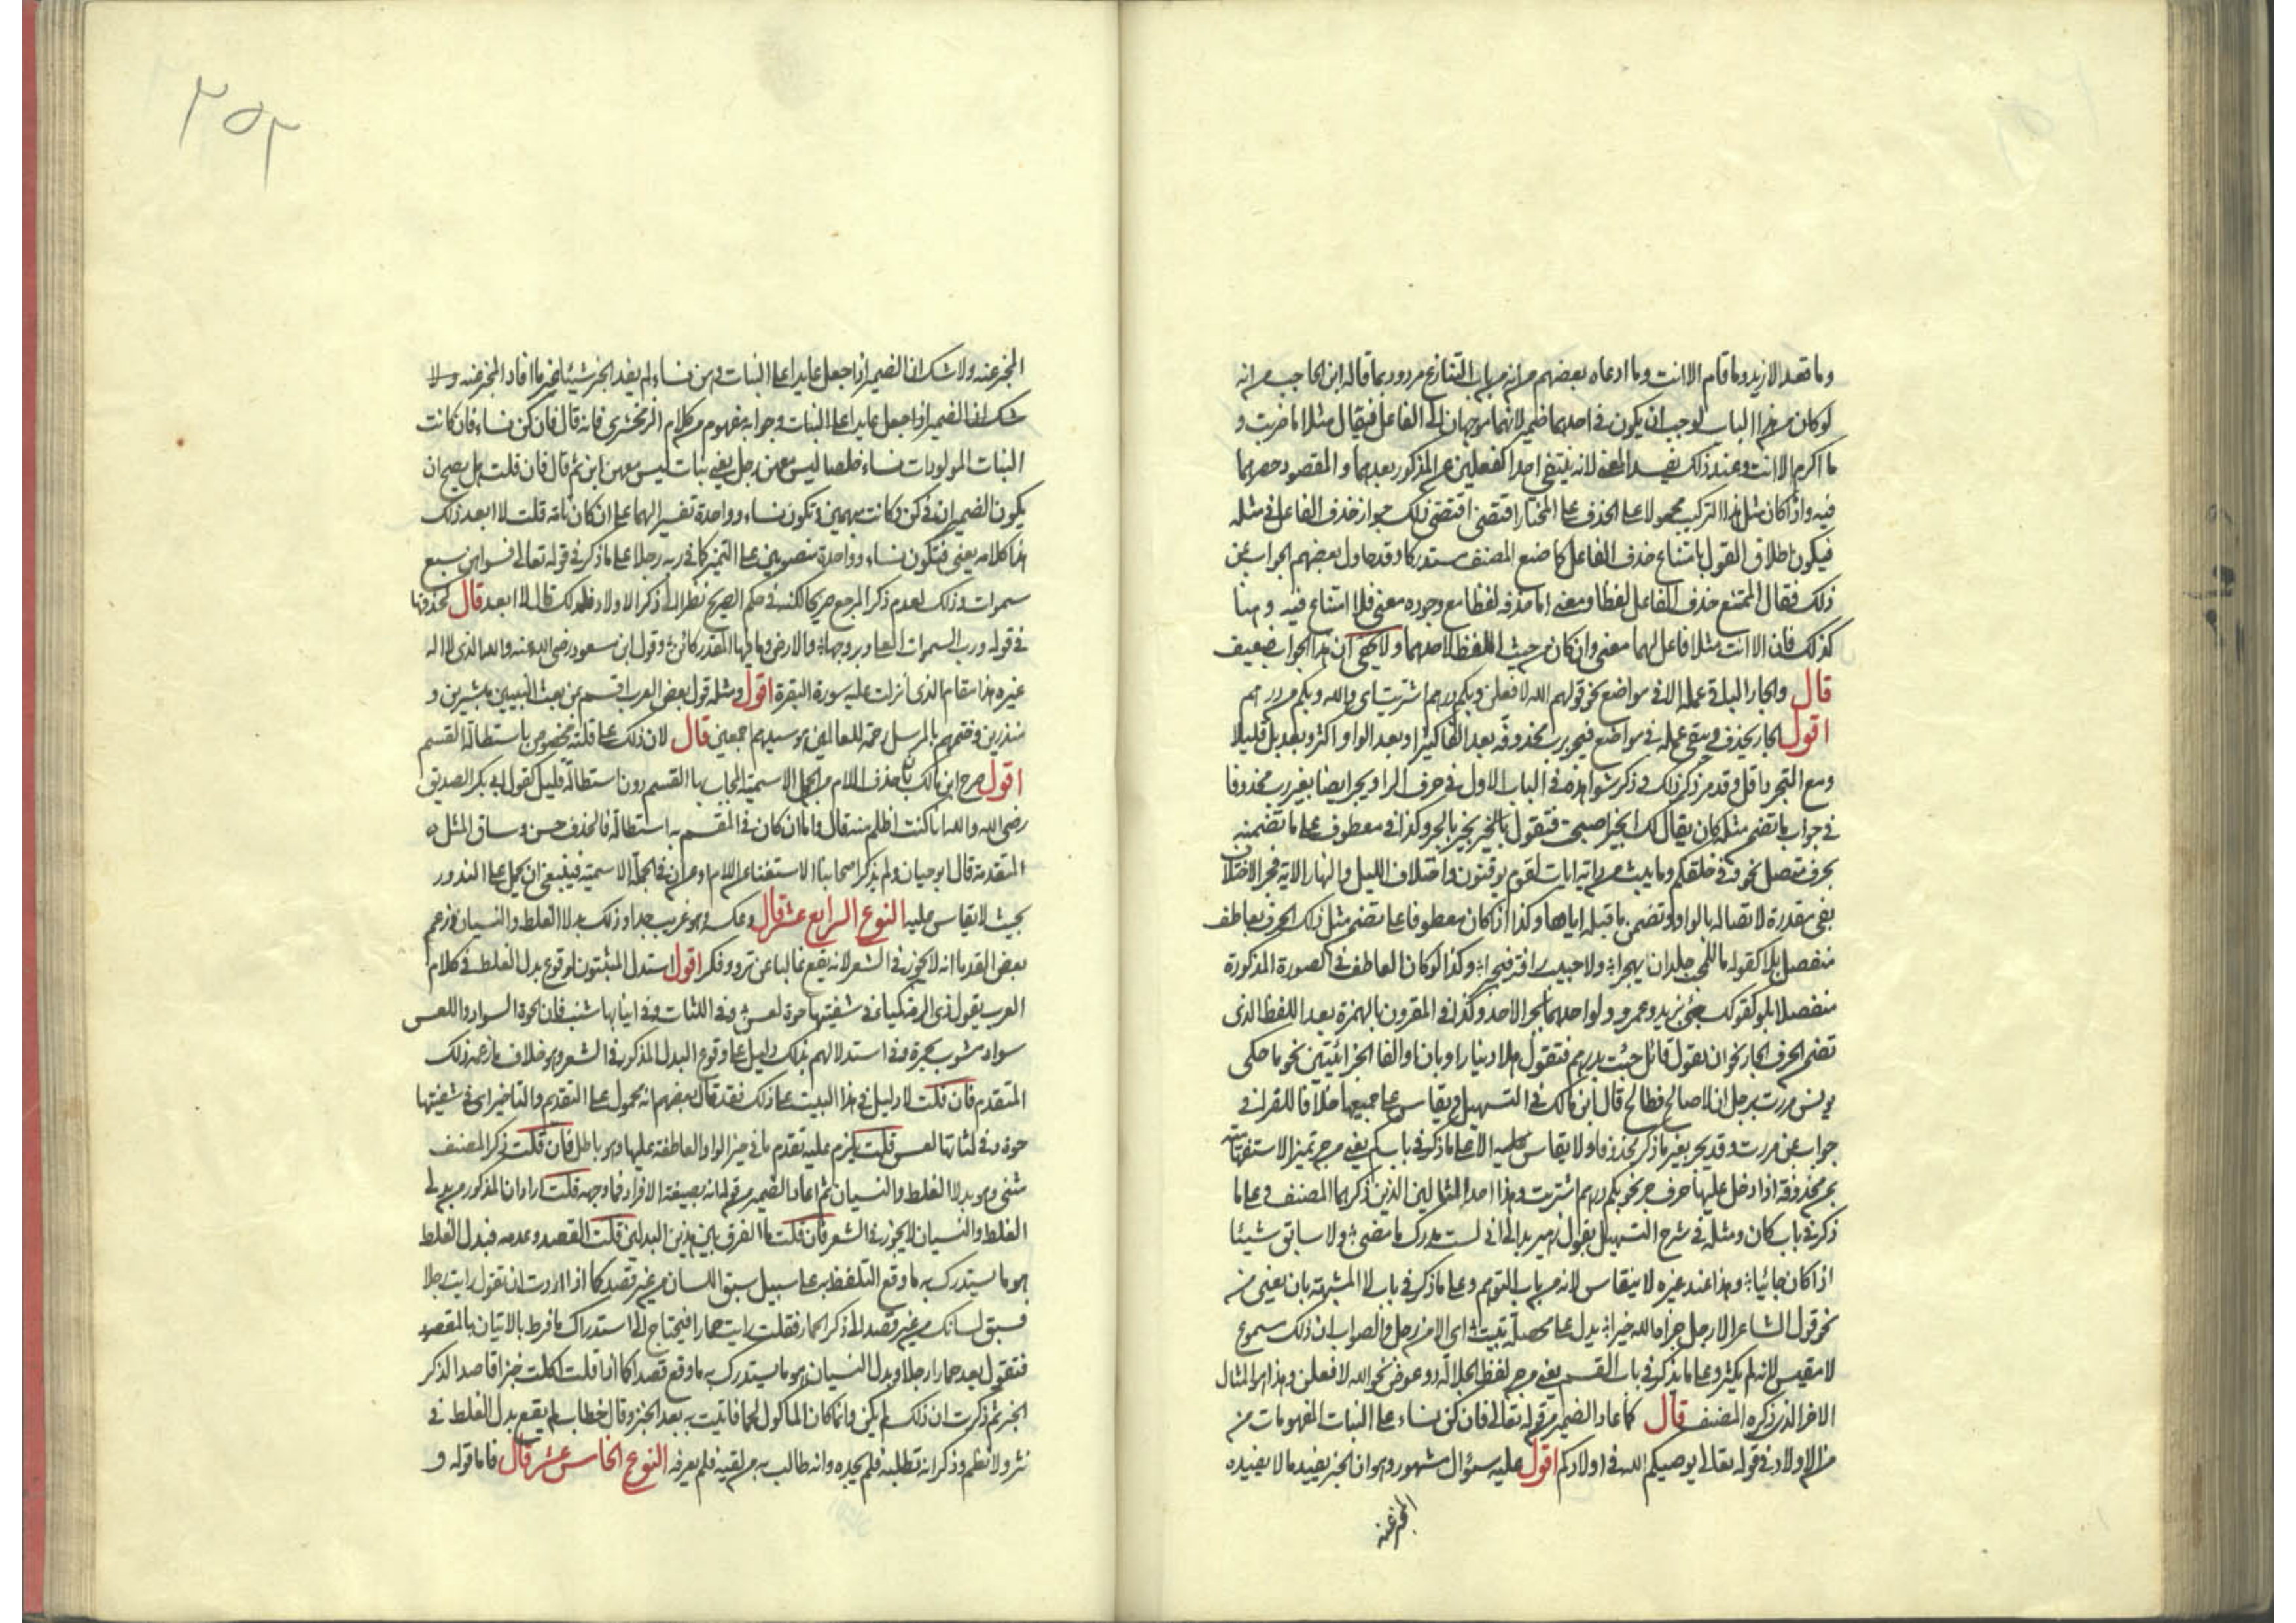 وما قعد الا زيد وما قام الا انت وما ادعاه بعضهم من انه من باب التنازع مردود بما قاله ابن الحاجب من انه
لو كان من هذا الباب لوجب ان يكون في احدهما ضمير لانهما موجهان الى الفاعل فيقال مثلا ما ضربت و
ما اكرم الا انت وعند ذلك يفسد المعنى لانه ينتفى احد الفعلين عن المذكور بعدهما والمقصود حصرهما
فيه واذا كان مثل هذا التركيب محمولا على الحذف على المختار اقتضى اقتضى ذلك جواز حذف الفاعل في مثله
فيكون اطلاق القول بامتناع حذف الفاعل كما صنع المصنف مستدركا وقد حاول بعضهم الجواب عن
ذلك فقال الممتنع حذف الفاعل لفظا ومعنى اما حذفه لفظا مع وجوده معنى فلا امتناع فيه وهنا
كذلك فان الا انت مثلا فاعل لهما معنى وان كان من حيث اللفظ لاحدهما ولا يخفى ان هذا الجواب ضعيف
قال والجار لا يبقى عمله الا في مواضع نحو قولهم الله لافعلن وبكم درهم اشتريت اى والله وبكم من درهم
اقول الجار يحذف ويبقى عمله في مواضع فيجر برب محذوفة بعد الفا كثيرا وبعد الواو اكثر وبعد بل قليلا
ومع التجرد اقل وقد مر ذكر ذلك في ذكر شواهده في الباب الاول في حرف الرا ويجر ايضا بغير رب محذوفا
في جواب ما تضمن مثله كان يقال لك ابخير اصبحت فتقول بالخير بخير بالجر وكذا في معطوف على ما تضمنه
بحرف متصل نحو وفي خلقكم وما يبث من دابة ايات لقوم يوقنون واختلاف الليل والنهار الاية فجر الاختلاف
بفى مقدرة لاتصاله بالواو وتضمن ما قبله اياها وكذا اذا كان معطوفا على متضمن مثل ذلك الحرف بعاطف
منفصل بلا كقوله ما لمحب جلد ان يهجرا ولا حبيب رافة فيجبرا وكذا لو كان العاطف في الصورة المذكورة
منفصلا بلو كقولك جئ بزيد وعمرو ولو احدهما بجر الاحد وكذا في المقرون بالهمزة بعد اللفظ الذى
تضمن الحرف الجار نحو ان يقول قائل جئت بدرهم فتقول هلا دينار او بان والفا الجزائيتين نحو ما حكى
يونس مررت برجل ان لا صالح فطالح قال ابن مالك في التسهيل ويقاس على جميعها خلافا للفراء في
جواب عن مررت وقد يجر بغير ما ذكر محذوفا ولا يقاس عليه الا على ما ذكر في باب كم يعنى من جر تميز الاستفهامية
بمن محذوفة اذا دخل عليها حرف جر نحو بكم درهم اشتريت وهذا احد المثالين الذين ذكرهما المصنف وعلى ما
ذكر في باب كان ومثله في شرح التسهيل بقول زهير بدا لى انى لست مدرك ما مضى ولا سابق شيئا
اذا كان جائيا وهذا عند غيره لا ينقاس لانه من باب التوهم وعلى ما ذكر في باب لا المشبهة بان يعنى من
نحو قول الشاعر الا رجل جزاه الله خيرا يدل على محصلة تبيت اى الا من رجل والصواب ان ذلك مسموع
لا مقيس لانه لم يكثر وعلى ما يذكر في باب القسم يعنى من جر لفظ الجلالة دو عوض نحو الله لافعلن وهذا هو المثال
الاخر الذى ذكره المصنف قال كما عاد الضمير من قوله تعالى فان كن نساء على البنات المفهومات من
من الاولاد في قوله تعالى يوصيكم الله في اولادكم اقول عليه سؤال مشهور وهو ان الخبر يفيد ما لا يفيده
المخبر عنه
٢٥٢
المخبر عنه ولا شك ان الضمير اذا جعل عايدا على البنات في من نساء لم يفد الخبر شيئا غير ما افاد المخبر عنه ولا
شك ان الضمير اذا جعل عايدا على البنات وجوابه مفهوم من كلام الزمخشرى فانه قال فان كن نساء فان كانت
البنات المولودات نساء خلصا ليس معهن رجل يعنى بنات ليس معهن ابن ثم قال فان قلت هل يصح ان
يكون الضميران في كن وكانت مبهمين وتكون نساء وواحدة تفسيرا لهما على ان كان تامة قلت لا ابعد ذلك
هذا كلامه يعنى فتكون نساء وواحدة منصوبين على التميز كما في ربه رجلا على ما ذكر في قوله تعالى فسواهن سبع
سموات وذلك لعدم ذكر المرجع صريحا لكنه في حكم الصريح نظرا الى ذكر الاولاد فلذلك قال لا ابعد قال كحذفها
في قوله ورب السموات العلى وبروجها والارض وما فيها المقدر كائن وقول ابن مسعود رضى الله عنه والله الذى لا اله
غيره هذا مقام الذى انزلت عليه سورة البقرة اقول ومثله قول بعض العرب اقسم بمن بعث النبيين مبشرين و
منذرين وختمهم بالمرسل رحمة للعالمين هو سيدهم اجمعين قال لان ذلك على قلته مخصوص باستطالة القسم
اقول صرح ابن مالك بان حذف اللام من الجمل الاسمية المجاب بها القسم دون استطالة قليل كقول ابى بكر الصديق
رضى الله والله انا كنت اظلم منه قال واما ان كان في المقسم به استطالة فالحذف حسن وساق المثل ه
المتقدمة قال ابو حيان ولم يذكر اصحابنا الاستغناء عن اللام او عن ان في الجملة الاسمية فينبغى ان يحمل على الندور
بحيث لا يقاس عليه النوع الرابع عشر قال وعكسه وهو غريب جدا وذلك بدلا الغلط والنسيان وزعم
بعض القدما انه لا يجوز في الشعر لانه يقع غالبا عن ترو وفكر اقول استدل المثبتون لوقوع بدل الغلط في كلام
العرب بقول ذى الرمة لمياء في شفتيها حوة لعس وفي اللثات وفي انيابها شنب فان الحوة السواد واللعس
سواد مشوب بحمرة وفي استدلالهم بذلك دليل على وقوع البدل المذكور في الشعر وهو خلاف ما زعمه ذلك
المتقدم فان قلت لا دليل في هذا البيت على ذلك فقد قال بعضهم انه محمول على التقديم والتاخير اى في شفتيها
حوة وفي لثاتها لعس قلت يلزم عليه تقدم ما في حيز الواو العاطفة عليها وهو باطل فان قلت ذكر المصنف
مثنى وهو بدلا الغلط والنسيان ثم اعاد الضمير من قوله انه بصيغة الافراد فما وجهه قلت اراد ان المذكور من بدلى
الغلط والنسيان لا يجوز في الشعر فان قلت ما الفرق بين هذين البدلين قلت القصد وعدمه فبدل الغلط
هو ما يستدرك به ما وقع التلفظ به على سبيل سبق اللسان من غير قصد كما اذا اردت ان تقول رايت رجلا
فسبق لسانك من غير قصد الى ذكر الحمار فقلت رايت حمارا فيحتاج الى استدراك ما فرط بالاتيان بالمقصود
فتقول بعد حمارا رجلا وبدل النسيان هو ما يستدرك به ما وقع قصدا كما اذا قلت اكلت خبزا قاصدا لذكر
الخبز ثم ذكرت ان ذلك لم يكن وانما كان الماكول لحما فاتيت به بعد الخبز وقال خطاب لم يقع بدل الغلط في
نثر ولا نظم وذكر انه تطلبه فلم يجده وانه طالب به من لقيه فلم يعرفه النوع الخامس عشر قال فاما قوله و